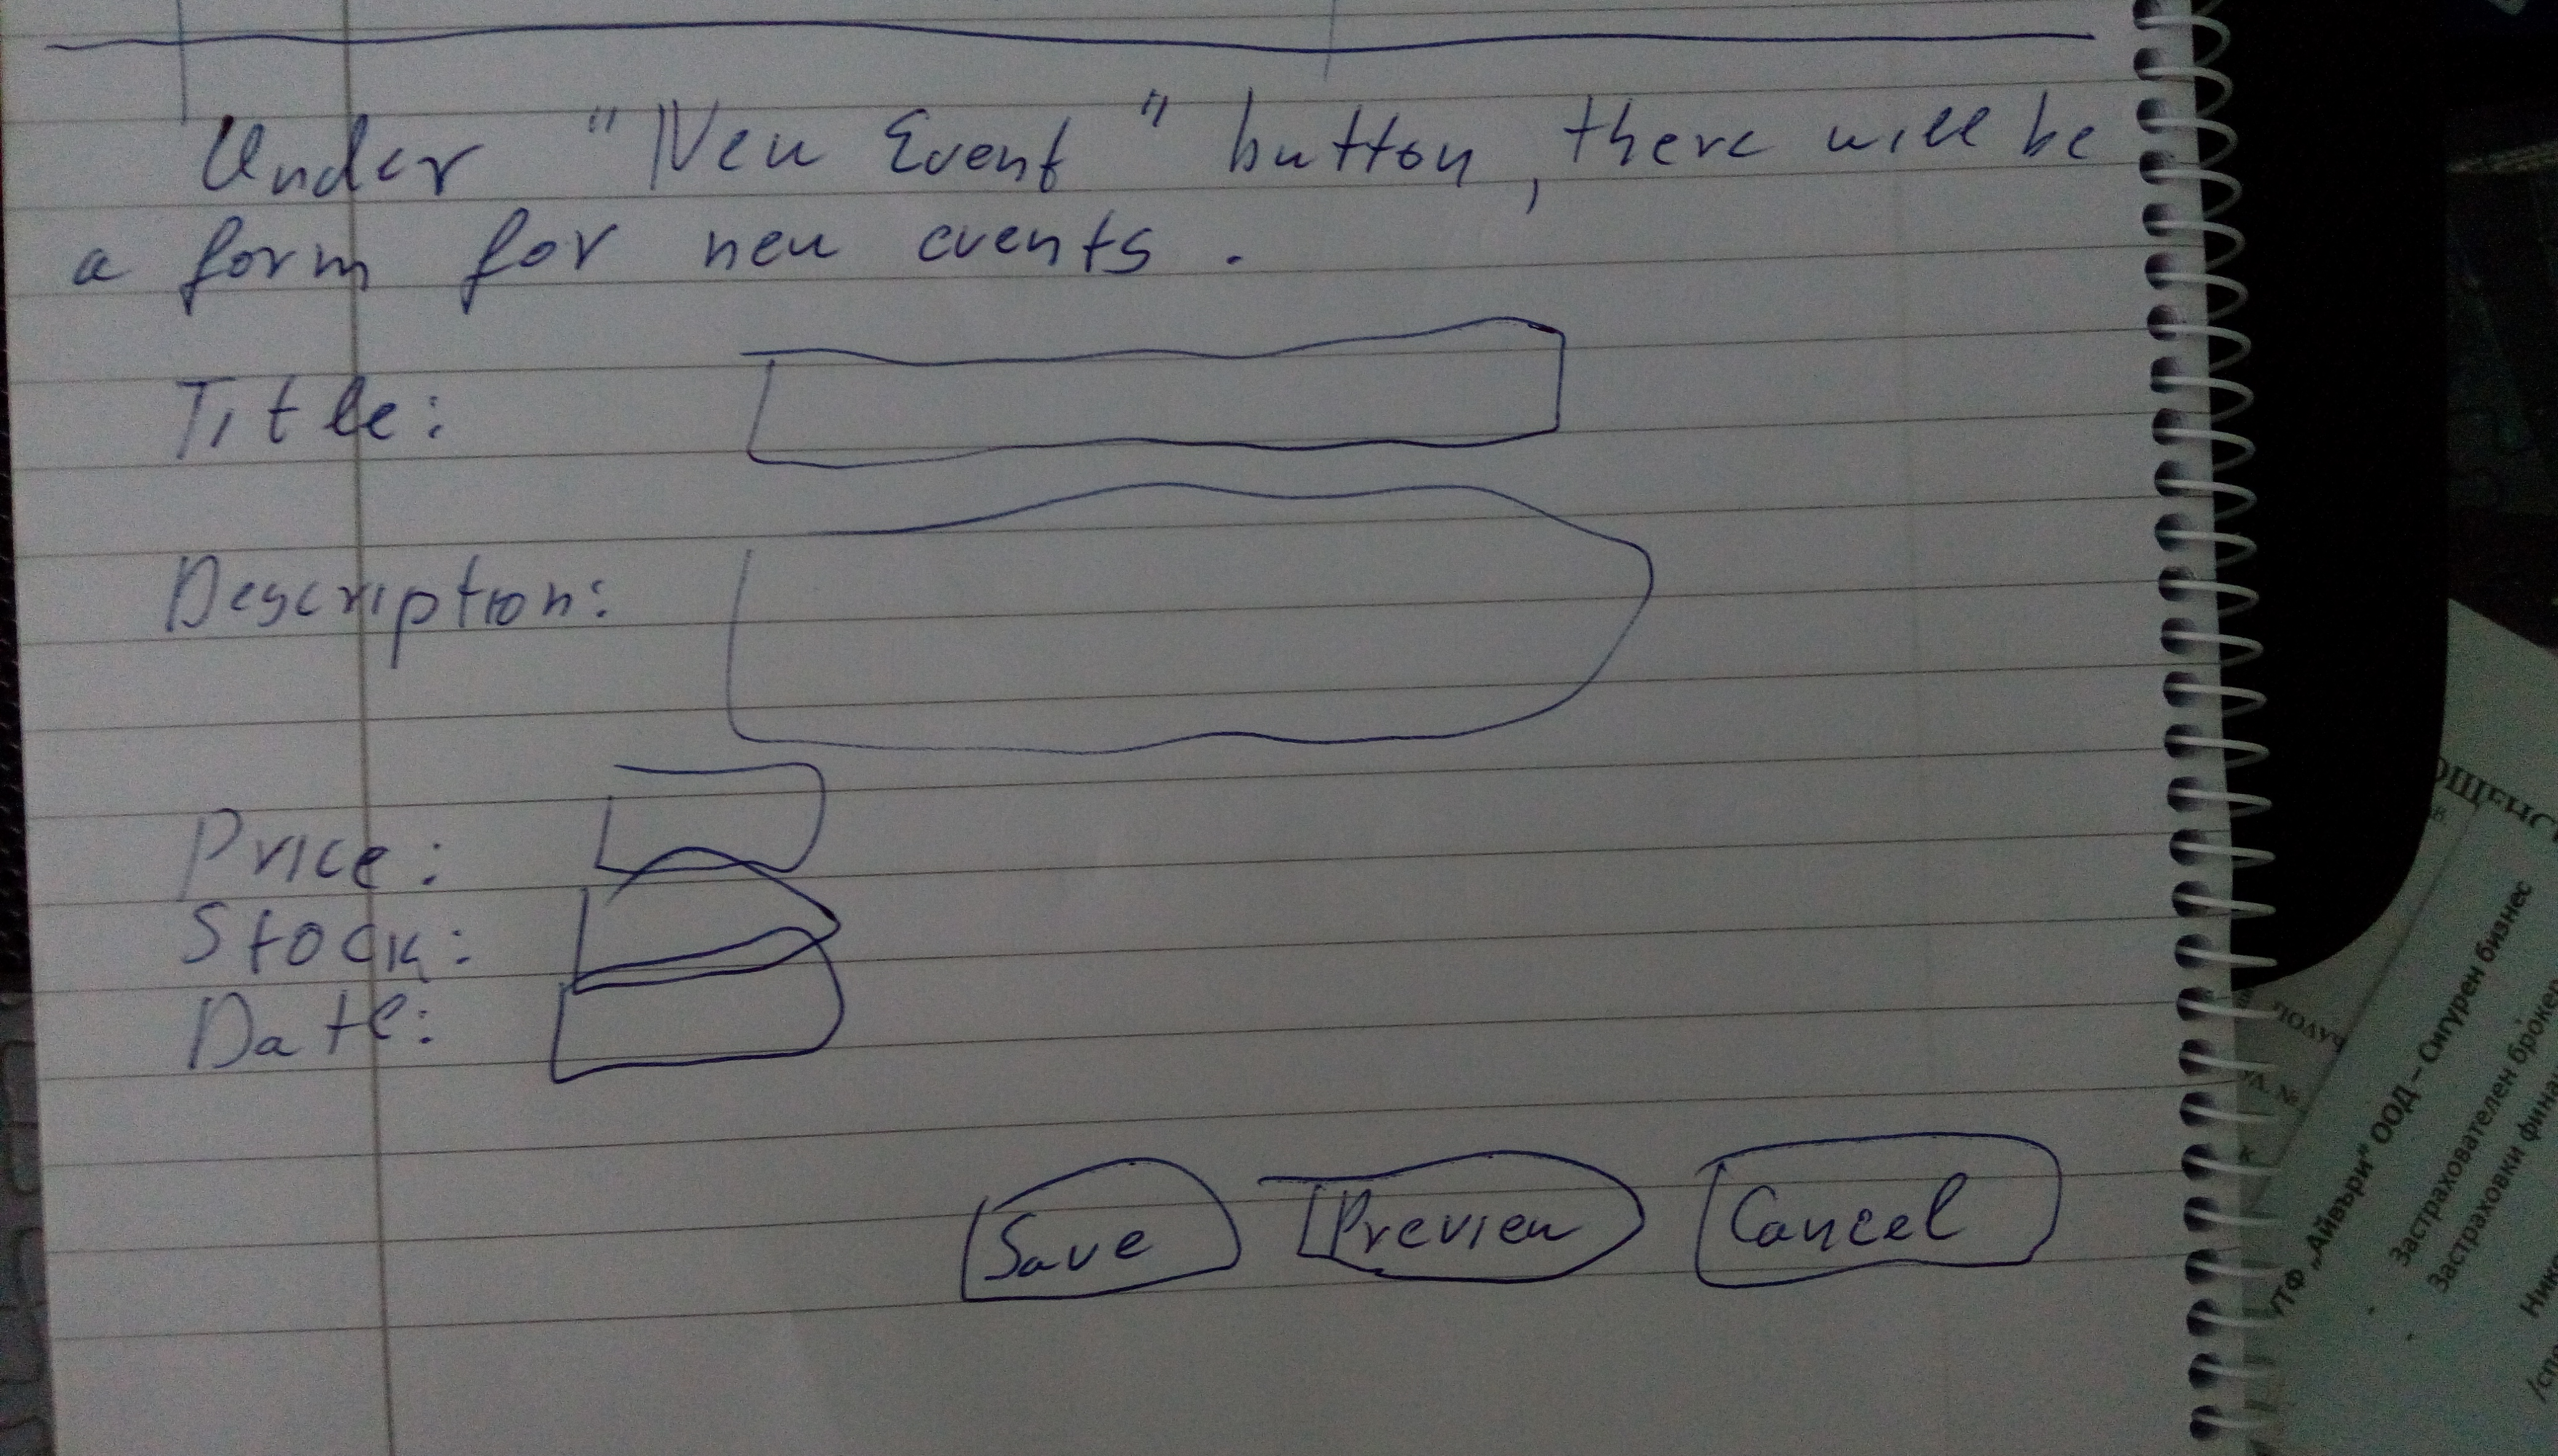 Under "New Event" button, there will be
a form for new events.
Title:
Description:
Price:
Stock:
Date:
Save Preview Cancel
УТФ „Айвъри“ ООД – Сигурен бизнес
Застрахователен брокер
Застраховки